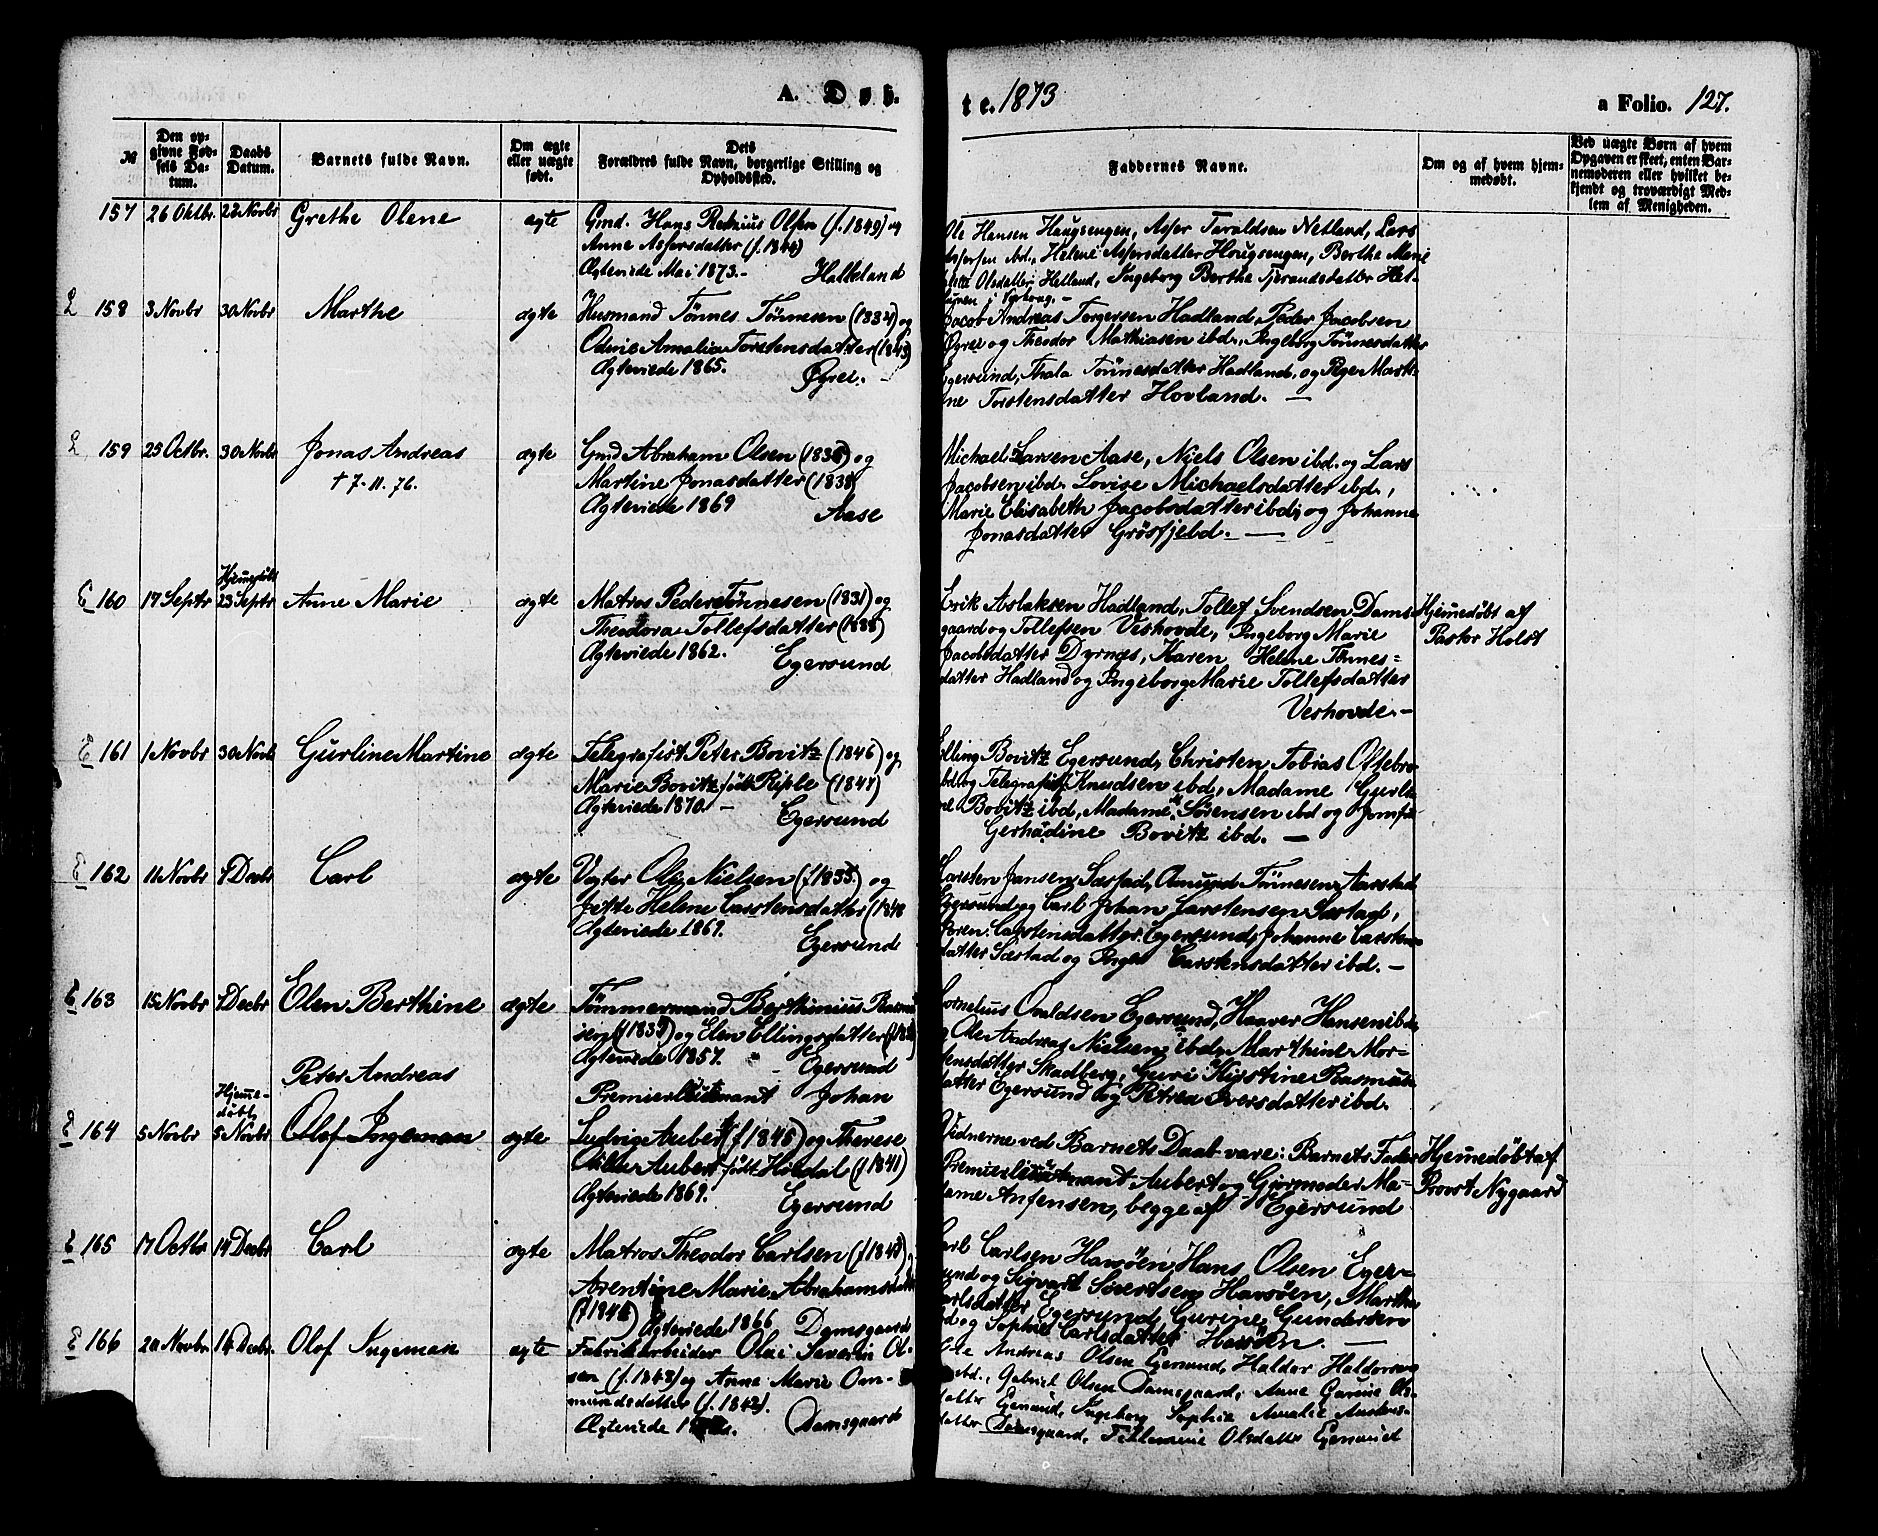 A. Døb-
te. 1873
a Folio. 127.
№
Den op-
givne Fød-
sels Da-
tum.
Daabs
Datum.
Barnets fulde Navn.
Om ægte
eller uægte
født.
Dets
Forældres fulde Navn, borgerlige Stilling og
Opholdssted.
Faddernes Navne.
Om og af hvem hjem-
medøbt.
Ved uægte Børn af hvem
Opgaven er skeet, enten Bar-
nemoderen eller hvilket be-
kjendt og troværdigt Med-
lem af Menigheden.
157 26 Oktbr. Novbr Grethe Olene ægte
Gmd. Hans Olsen (f. 1849) og
Anne Asfersdatter
Ægteviede Mai 1873.- Halleland
Ole Hansen Haugsengen, Asfer Taraldsen Netland, Lars
Asfersen ibd., Helene Asfersdatter Hougsengen, Berthe Marie
Olsdatter Hetland, Ingeborg Berthe Tjerandsdatter Het-
158 3 Novbr 30 Novbr Marthe ægte
Husmand Tönnes Tönnesen og
Amalia Torstensdatter (1843)
Ægteviede 1865. Øgree.
Jacob Andreas Torgersen Hadland, Peder Jacobsen
Øgree og Theodor Mathiasen ibd., Ingeborg Tönnesdatter
Egersund, Thala Tönnesdatter Hadland og Marti-
ne Torstensdatter Hovland. —
159 25 Octbr. 30 Novbr Jonas Andreas ægte
† 7. 11. 76.
Gmd Abraham Olsen og
Martine Jonasdatter (1838
Ægteviede 1869 Aase
Michael Larsen Aase, Niels Olsen ibd. og Lars
Jacobsen ibd. Lovise Michaelsdatter ibd.,
Marie Elisabeth Jacobsdatter ibd., og Johanne
Jonasdatter Grösfjeld. —
Hjemedöbt
160 17 Septr 23 Septr Anne Marie ægte
Matros Peder Tönnesen (1831) og
Theodora Tollefsdatter (1838)
Ægteviede 1862. Egersund
Erik Aslaksen Hadland, Tollef Svendsen Dams-
gaard og Tollefsen Veshovde, Ingeborg Marie
Jacobsdatter Dyrnæs, Karen Helene Tönnes=
datter Hadland og Ingeborg Marie Tollefsdatter
Veshovde.—
Hjemedöbt af
Pastor Holst
161 1 Novbr 30 Novb Gurline Martine ægte
Telegrafist Peter Bovitz (1846) og
Marie Bovitz født Riple (1847)
Ægteviede 1870. — Egersund
Elling Bovitz Egersund, Christen Tobias
og Telegrafist Knudsen ibd, Madame Gurli-
ne Bovitz ibd, Madame Sörensen ibd og Jomfru
Gerhadine Bovitz ibd. —
162 11 Novbr 7 Decbr Carl ægte
Vægter Ole Nielsen og
Jette Helene Carstensdatter (1840
Ægteviede 1869. Egersund
Carsten Jansen Sæstad, Omund Tönnesen Aarstad
Egersund og Carl Johan Carstensen Sæstad,
Karen Carstensdatter Egersund, Johanne Carstens-
datter Sæstad og Inger Carstensdatter ibd. —
163 15 Novbr 7 Decbr Elen Berthine ægte
Tömmermand Berthinius Rasmus-
sen og Elen Ellingsdatter
Ægteviede 1857. Egersund
Cornelius Osvaldsen Egersund, Haaver Hansen ibd,
og Ole Andreas Nielsen ibd, Marthine Mor-
tensdatter Skadberg, Guri Kirstine Rasmus-
datter Egersund og Petrea Iversdatter ibd.
Peter Andreas
Hjeme-
döbt,
164 5 Novbr 5 Novbr Olof Ingeman ægte
Premierlieutenant Johan
Ludvig Aubert (f 1845) og Therese
Aubert født Hirdal (f 1841)
Ægteviede 1869. Egersund
Vidnerne ved Barnets Daab vare: Barnets Fader
Premierlieutnant Aubert og Gjormoder Ma-
dame Anfensen, begge af Egersund
Hjemedöbt af
Provst Nygaard
165 17 Octbr 14 Decbr Carl ægte
Matros Theodor Carlsen og
Arentine Marie Abrahamsdatter
Ægteviede 1866 Damsgaard
Carl Carlsen Havsöen, Hans Olsen Eger=
sund og Sigvart Sivertsen Havsöen, Martha
Carlsdatter Egersund, Gurine Gundersen
ibd og Sophie Carlsdatter Havsöen. —
166 20 Novbr 14 Decbr. Olof Ingeman ægte
Fabrikarbeider Olai Severin Ol-
sen (f. 1843) og Anne Marie Om-
mundsdatter (f. 1842).
Ægteviede Damsgaard
Ole Andreas Olsen Egersund, Haldor Haldorsen
ibd., Gabriel Olsen Damsgaard, Anne Gurine Ols-
datter Egersund, Ingeborg Sophie Amalie Anders-
datter Damsgaard, Tellemine Olsdatter Egersund